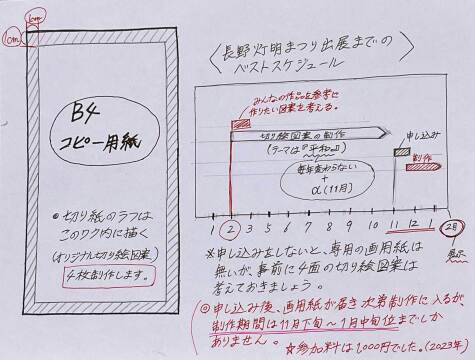 1cm
1cm
B4
コピー用紙
切り紙のラフは
このワク内に描く
(オリジナル切り絵図案)
4枚制作します。
〈長野灯明まつり出展までの
ベストスケジュール〉
みんなの作品を参考に
作りたい図案を考える。
切り絵図案の制作
(テーマは『平和』)
毎年変わらない
+
α(11月)
申し込み
制作
1 2 3 4 5 6 7 8 9 10 11 12 1 2月
展示
※申し込みをしないと、専用の画用紙は
無いが、事前に4面の切り絵図案は
考えておきましょう。
◎申し込み後、画用紙が届き次第制作に入るが、
制作期間は11月下旬〜1月中旬位までしか
ありません。
☆参加料は1,000円でした。(2023年)